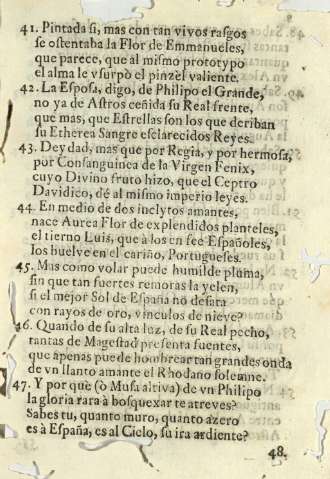 41. Pintada si, mas con tan vivos rasgos
se ostentaba la Flor de Emmanueles,
que parece, que al mismo prototypo
el alma le vsurpò el pinzèl valiente.
42. La Esposa, digo, de Philipo el Grande,
no ya de Astros ceñida su Real frente,
que mas, que Estrellas son los que deriban
su Etherea Sangre esclarecidos Reyes.
43. Deydad, mas que por Regia, y por hermosa,
por Consanguinea de la Virgen Fenix,
cuyo Divino fruto hizo, que el Ceptro
Davidico, dé al mismo imperio leyes.
44. En medio de dos inclytos amantes,
nace Aurea Flor de explendidos planteles,
el tierno Luis, que à los en feè Españoles,
los huelve en el cariño, Portugueses.
45. Mas como volar puede humilde pluma,
sin que tan fuertes remoras la yelen,
si el mejor Sol de España no desata
con rayos de oro, vinculos de nieve?
46. Quando de su alta luz, de su Real pecho,
tantas de Magestad presenta fuentes,
que àpenas puede hombrear tan grandes onda
de vn llanto amante el Rhodano solemne.
47. Y por què (ò Musa altiva) de vn Philipo
la gloria rara à bosquexar te atreves?
Sabes tu, quanto muro, quanto azero
es à España, es al Cielo, su ira ardiente?
48.